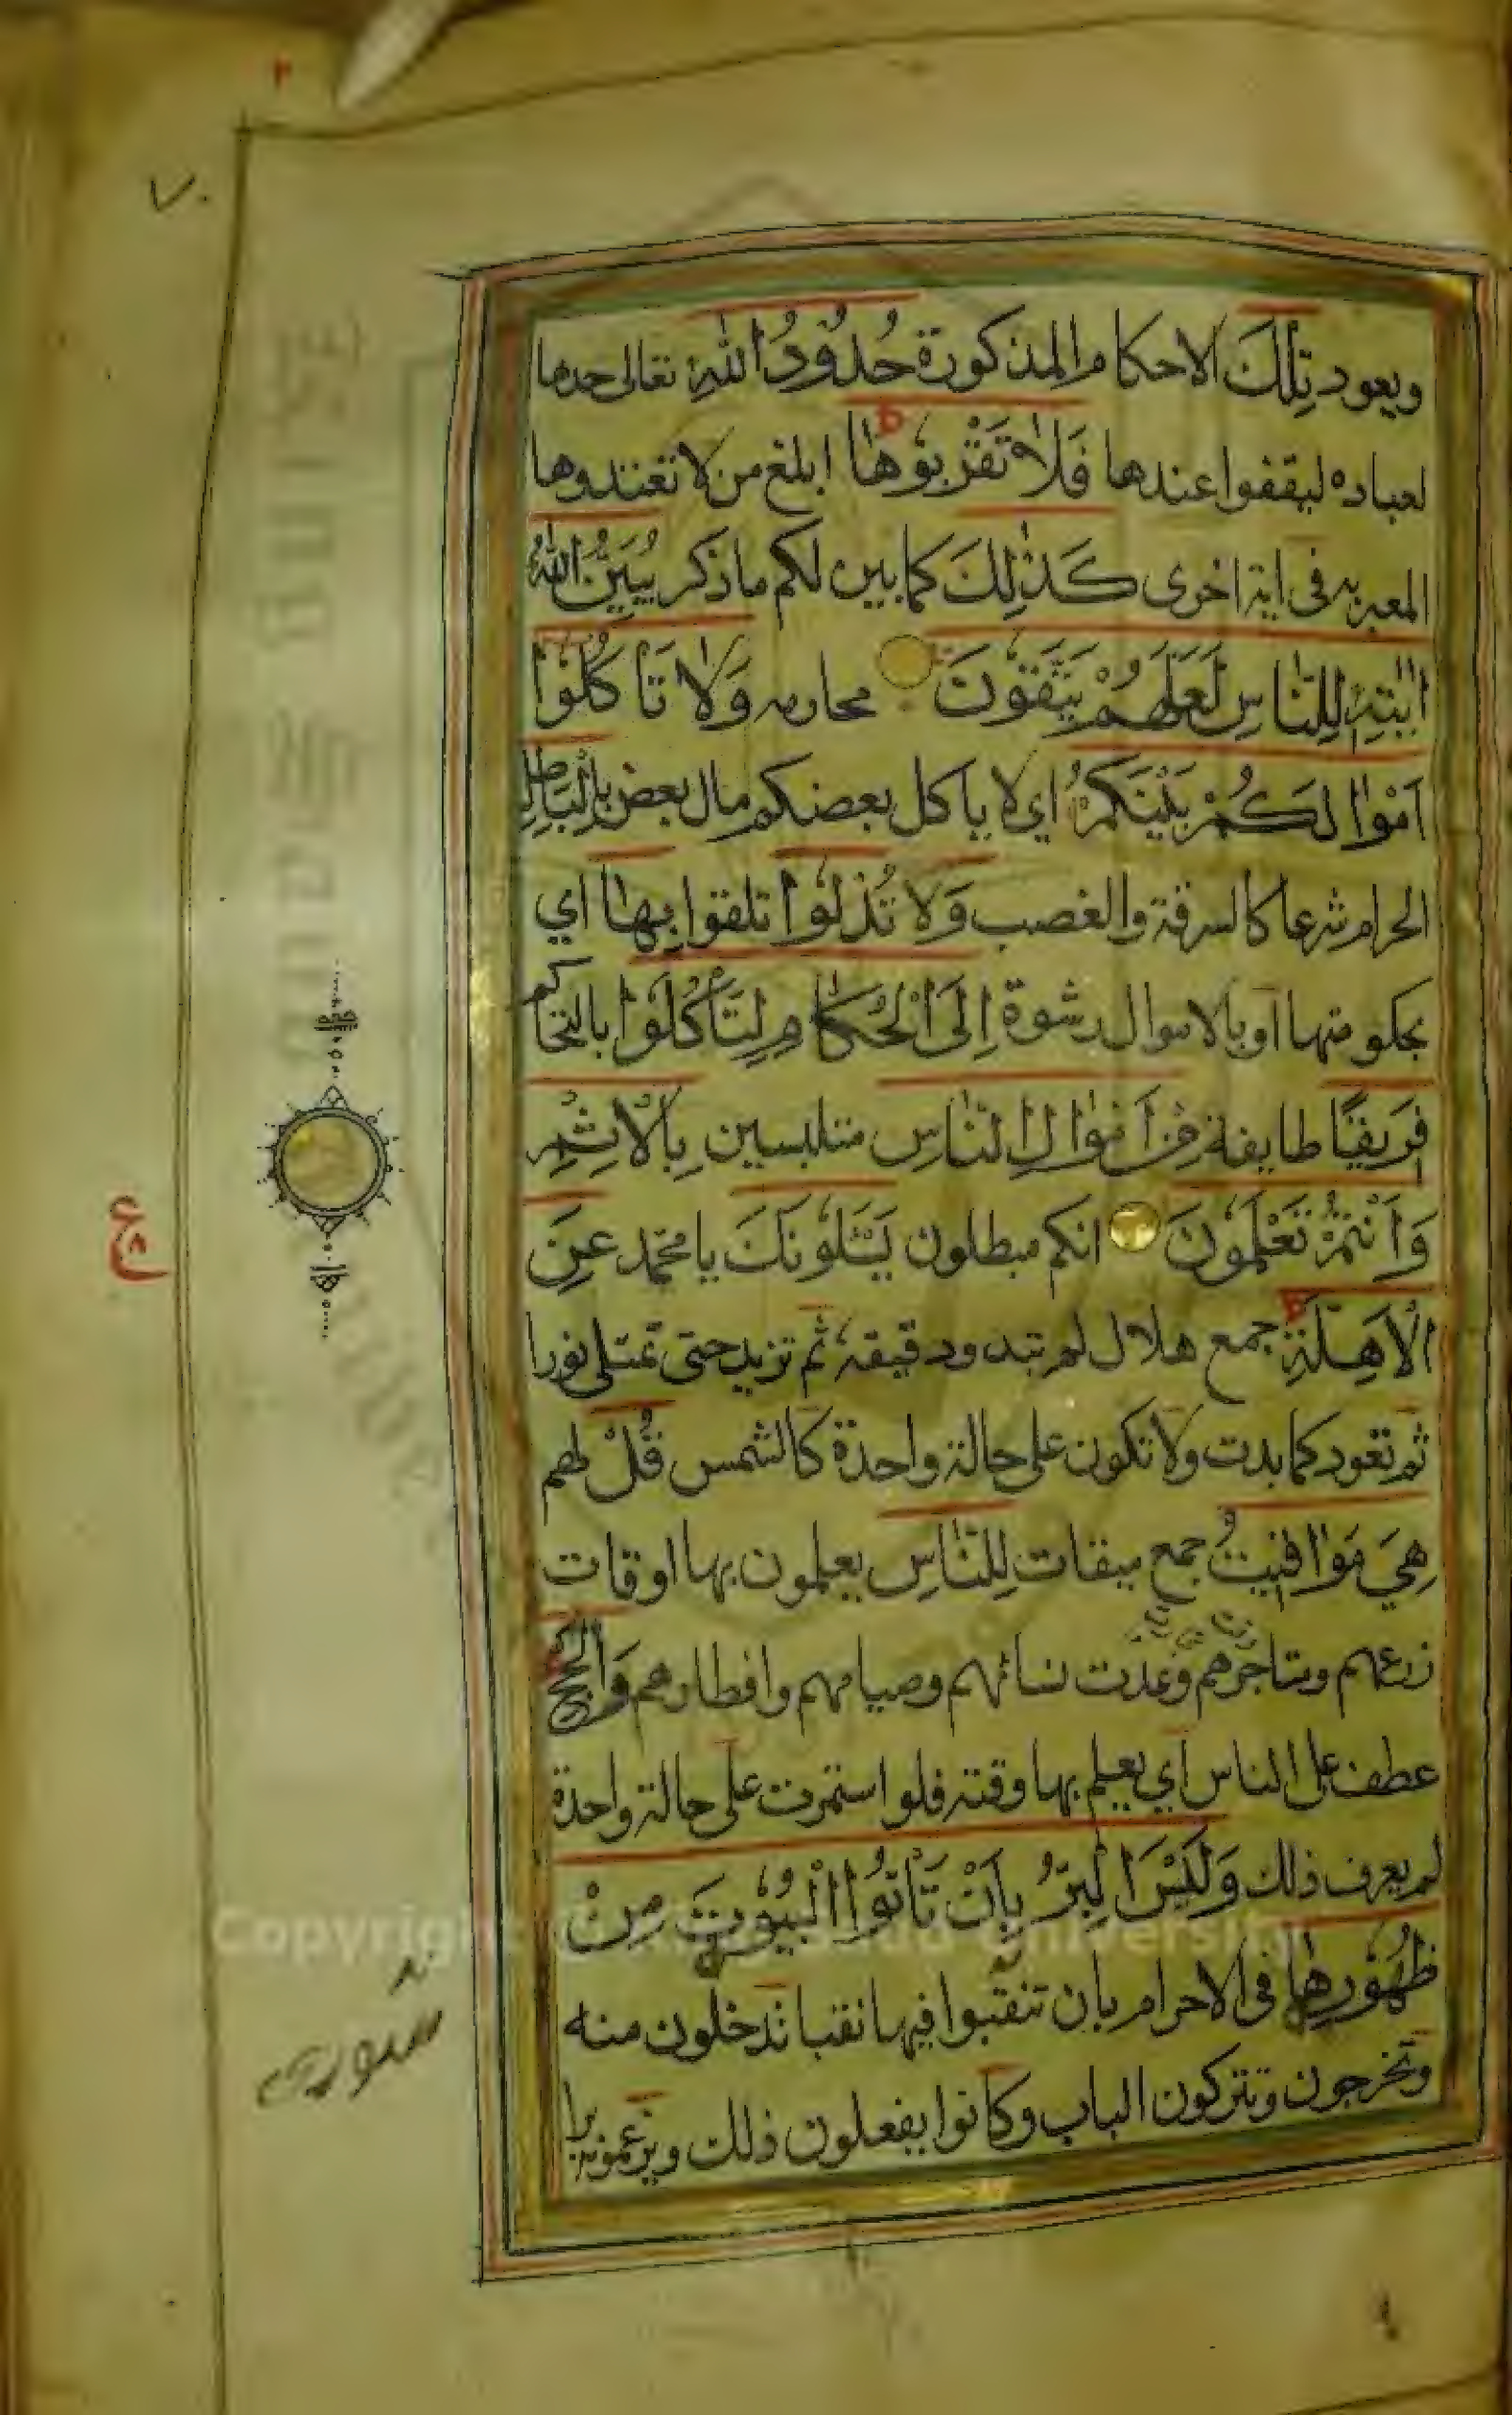 ٧٠
ويعود تِلْكَ الاحكام المذكورة حُدُوْدُ اللّٰهِ تعالى حدها
لعباده ليقفوا عندها فَلَا تَقْرَبُوْهَا ابلغ من لا تعتدوها
المعبر به في اية اخرى كَذٰلِكَ كما بين لكم ما ذكر يُبَيِّنُ اللّٰهُ
اٰيٰتِهٖ لِلنَّاسِ لَعَلَّهُمْ يَتَّقُوْنَ محارمه وَلَا تَاْكُلُوْا
اَمْوَالَكُمْ بَيْنَكُمْ اي لا ياكل بعضكم مال بعض بِالْبَاطِلِ
الحرام شرعا كالسرقة والغصب وَلَا تُدْلُوْا تلقوا بِهَا اي
بحكومتها او بالاموال رشوة اِلَى الْحُكَّامِ لِتَاْكُلُوْا بالتحاكم
فَرِيْقًا طايفة مِنْ اَمْوَالِ النَّاسِ متلبسين بِالْاِثْمِ
وَاَنْتُمْ تَعْلَمُوْنَ انكم مبطلون يَسْـَٔلُوْنَكَ يا محمد عَنِ
الْاَهِلَّةِ جمع هلال لم تبدو دقيقة ثم تزيد حتى تمتلى نورا
ثم تعود كما بدت ولا تكون على حالة واحدة كالشمس قُلْ لهم
هِيَ مَوَاقِيْتُ جمع ميقات لِلنَّاسِ يعلمون بها اوقات
زرعهم ومتاجرهم وعدت نسائهم وصيامهم وافطارهم وَالْحَجِّ
عطف على الناس اي يعلم بها وقته فلو استمرت على حالة واحدة
لم يعرف ذلك وَلَيْسَ الْبِرُّ بِاَنْ تَاْتُوا الْبُيُوْتَ مِنْ
ظُهُوْرِهَا في الاحرام بان تنقبوا فيها نقبا تدخلون منه
وتخرجون وتتركون الباب وكانوا يفعلون ذلك ويزعمونه برا